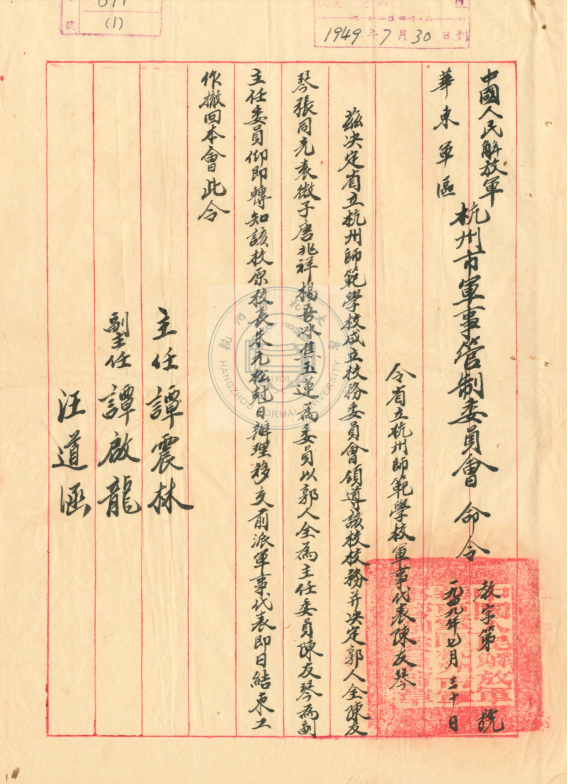 011
(1)
號
1949年7月30日
中國人民解放軍
華東軍區
杭州市軍事管制委員會 命令
教字第 號
一九四九年七月三十日
令省立杭州師範學校軍事代表陳友琴
茲決定省立杭州師範學校成立校務委員會領導該校校務并決定郭人全陳友
琴張同光袁微子唐兆祥楊吾冰崔玉蓮為委員以郭人全為主任委員陳友琴為副
主任委員仰即轉知該校原校長朱元松尅日辦理移交前派軍事代表即日結束工
作撤回本會此令
主任譚震林
副主任譚啟龍
汪道涵
HANGZHOU NORMAL UNIVERSITY
1908